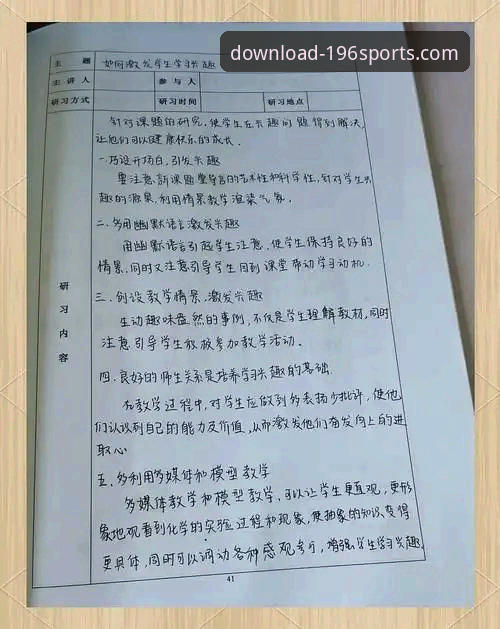 download-196sports.com
主 题 如何激发学生学习兴趣
主讲人 参与人
研习方式 研习时间 研习地点
研习内容
针对课题的研究,使学生在兴趣问题得到解决,
让他们可以健康快乐的成长.
一.巧设开场白,引发兴趣
要注意新课题里导言的艺术性和科学性,针对学生兴
趣的源泉,利用情景教学渲染气氛.
二.多用幽默语言激发兴趣
用幽默语言引起学生注意,使学生保持良好的
情景,同时又注意引导学生回到课堂带动学习动机.
三.创设教学情景.激发兴趣
生动趣味盎然的事例,不仅是学生理解教材,同时
注意引导学生放松参加教学活动.
四.良好的师生关系是培养学习兴趣的基础.
在教学过程中,对学生应做到多表扬少批评,使他
们认识到自己的能力及价值,从而激发他们奋发向上的进
取心
五.多利用多媒体和模型教学
多媒体教学和模型教学,可以让学生更直观,更形
象地观看到化学的实验过程和现象,使抽象的知识变得
更具体,同时可以调动各种感观参与,增强学生学习兴趣.
41